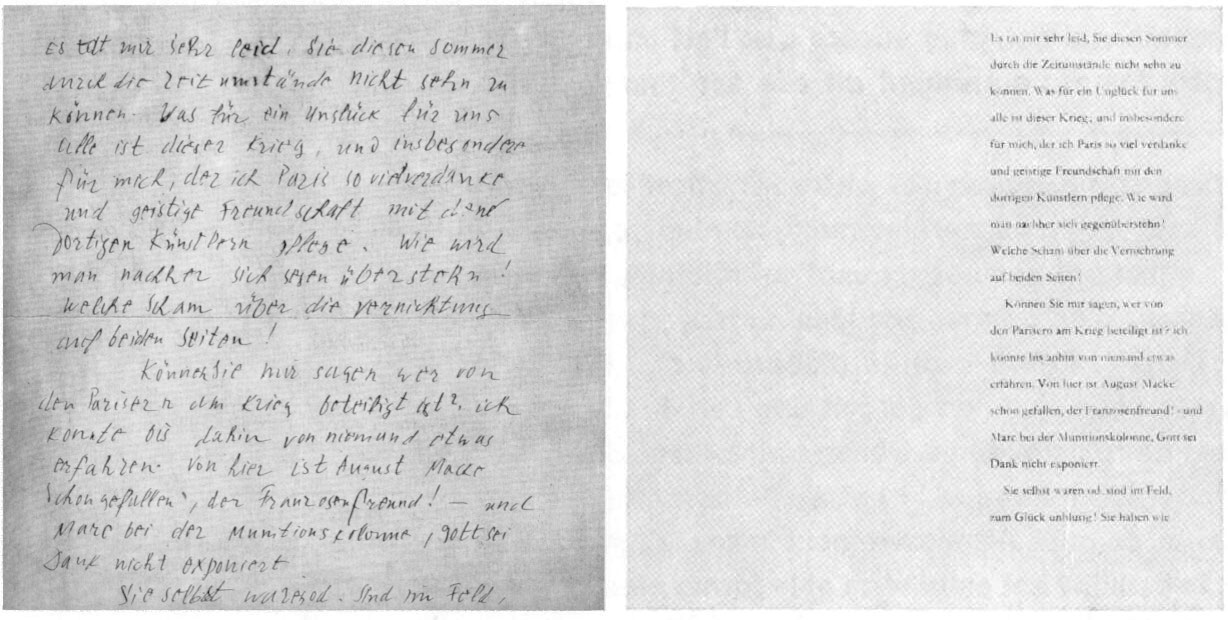 es tat mir sehr leid, Sie diesen Sommer
durch die Zeitumstände nicht sehn zu
können. Was für ein Unglück für uns
alle ist dieser Krieg, und insbesondere
für mich, der ich Paris so viel verdanke
und geistige Freundschaft mit den
dortigen Künstlern pflege. Wie wird
man nachher sich gegenüberstehn!
welche Scham über die Vernichtung
auf beiden Seiten!
Können Sie mir sagen wer von
den Parisern am Krieg beteiligt ist? ich
konnte bis dahin von niemand etwas
erfahren. Von hier ist August Macke
schon gefallen, der Franzosenfreund! – und
Marc bei der Munitionskolonne, Gott sei
Dank nicht exponiert
Sie selbst waren od. sind im Feld,
Es tat mir sehr leid, Sie diesen Sommer
durch die Zeitumstände nicht sehn zu
können. Was für ein Unglück für uns
alle ist dieser Krieg, und insbesondere
für mich, der ich Paris so viel verdanke
und geistige Freundschaft mit den
dortigen Künstlern pflege. Wie wird
man nachher sich gegenüberstehn!
Welche Scham über die Vernichtung
auf beiden Seiten!
Können Sie mir sagen, wer von
den Parisern am Krieg beteiligt ist? ich
konnte bis anhin von niemand etwas
erfahren. Von hier ist August Macke
schon gefallen, der Franzosenfreund! - und
Marc bei der Munitionskolonne, Gott sei
Dank nicht exponiert.
Sie selbst waren od. sind im Feld,
zum Glück unblutig! Sie haben wie